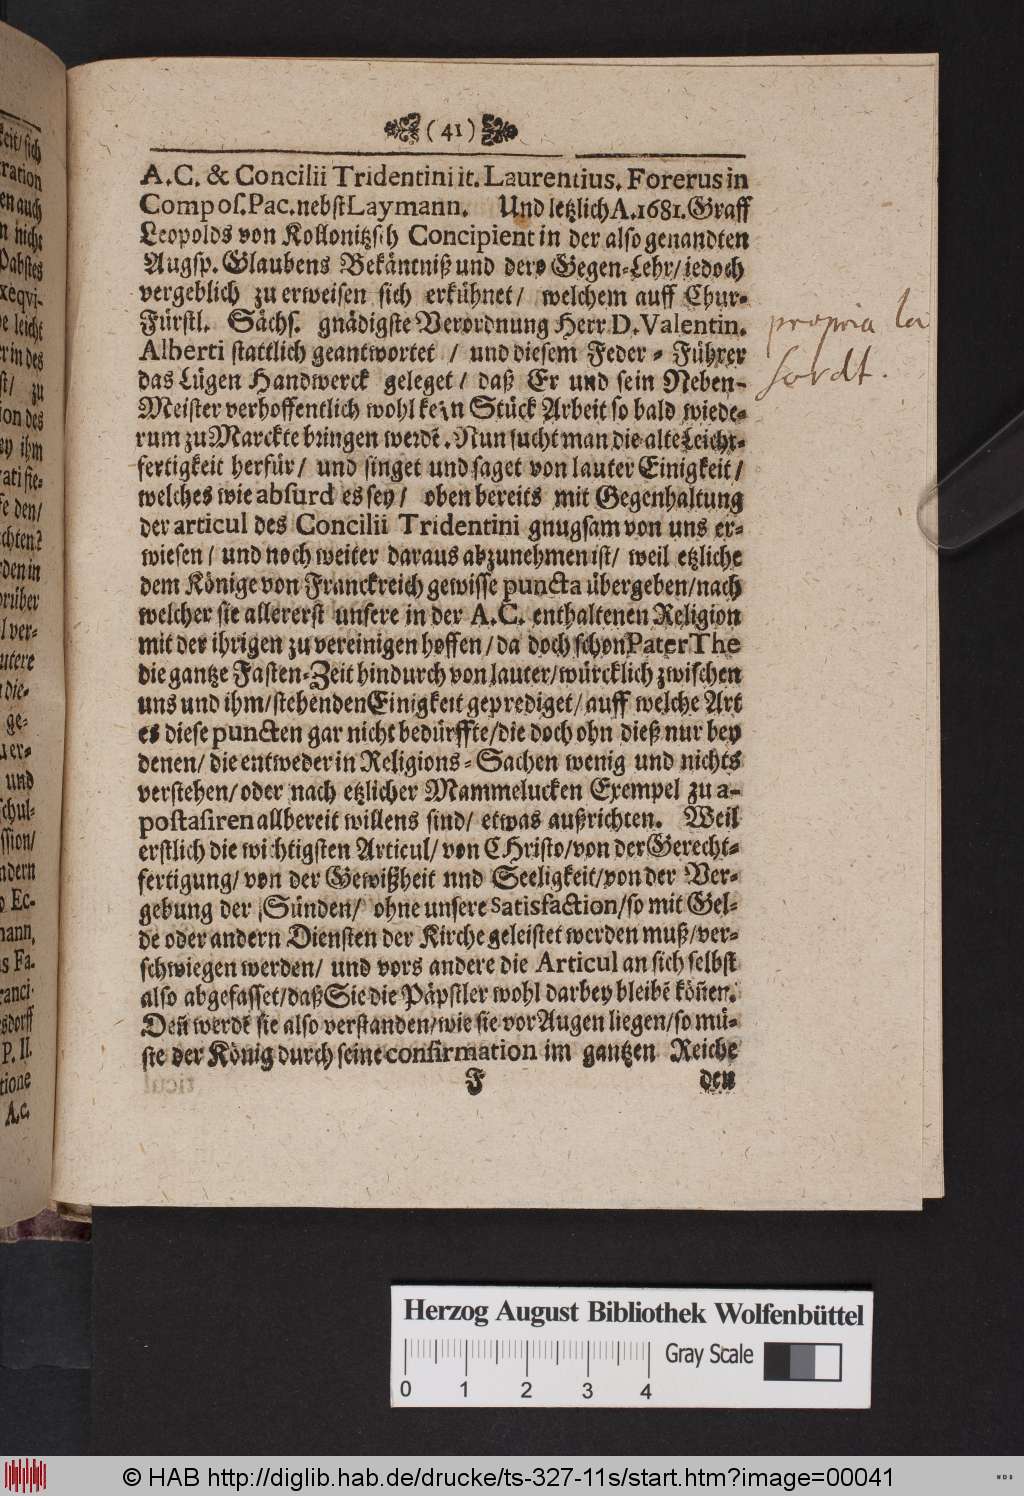 ( 41 )
A. C. & Concilii Tridentini it. Laurentius. Forerus in
Compos. Pac. nebst Laymann. Und letzlich A. 1681. Graff
Leopolds von Kollonitzsch Concipient in der also genandten
Augsp. Glaubens Bekäntniß und dero Gegen-Lehr/ jedoch
vergeblich zu erweisen sich erkühnet/ welchem auff Chur-
Fürstl. Sächs. gnädigste Verordnung Herr D. Valentin.
Alberti stattlich geantwortet / und diesem Feder-Führer
das Lügen Handwerck geleget/ daß Er und sein Neben-
Meister verhoffentlich wohl kein Stück Arbeit so bald wiede-
rum zu Marckte bringen werdẽ. Nun sucht man die alte Leicht-
fertigkeit herfür/ und singet und saget von lauter Einigkeit/
welches wie absurd es sey/ oben bereits mit Gegenhaltung
der articul des Concilii Tridentini gnugsam von uns er-
wiesen/ und noch weiter daraus abzunehmen ist/ weil etzliche
dem Könige von Franckreich gewisse puncta übergeben/ nach
welcher sie allererst unsere in der A. C. enthaltenen Religion
mit der ihrigen zu vereinigen hoffen/ da doch schon Pater The
die gantze Fasten-Zeit hindurch von lauter/ würcklich zwischen
uns und ihm/ stehenden Einigkeit geprediget/ auff welche Art
es diese puncten gar nicht bedürffte/ die doch ohn dieß nur bey
denen/ die entweder in Religions-Sachen wenig und nichts
verstehen/ oder nach etzlicher Mammelucken Exempel zu a-
postasiren allbereit willens sind/ etwas außrichten. Weil
erstlich die wichtigsten Articul/ von CHristo/ von der Gerecht-
fertigung/ von der Gewißheit nnd Seeligkeit/ von der Ver-
gebung der Sünden/ ohne unsere Satisfaction/ so mit Gel-
de oder andern Diensten der Kirche geleistet werden muß/ ver-
schwiegen werden/ und vors andere die Articul an sich selbst
also abgefasset/ daß Sie die Päpstler wohl darbey bleibẽ köñen.
Deñ werdẽ sie also verstanden/ wie sie vor Augen liegen/ so mü-
ste der König durch seine confirmation im gantzen Reiche
F den
propria la
sordt.
keit/ sich
ration
en auch
n nicht
Pabstes
xeqvi-
e leicht
er in des
st/ zu
ion des
ey ihm
rati sie-
e den/
chten?
rden in
rüber
l ver-
utere
die-
ge-
uer-
und
schul-
ssion/
ndern
Ec-
mann,
s Fa.
ranci-
sdorff
P. II.
tione
A.C.
Herzog August Bibliothek Wolfenbüttel
Gray Scale
0 1 2 3 4
© HAB http://diglib.hab.de/drucke/ts-327-11s/start.htm?image=00041